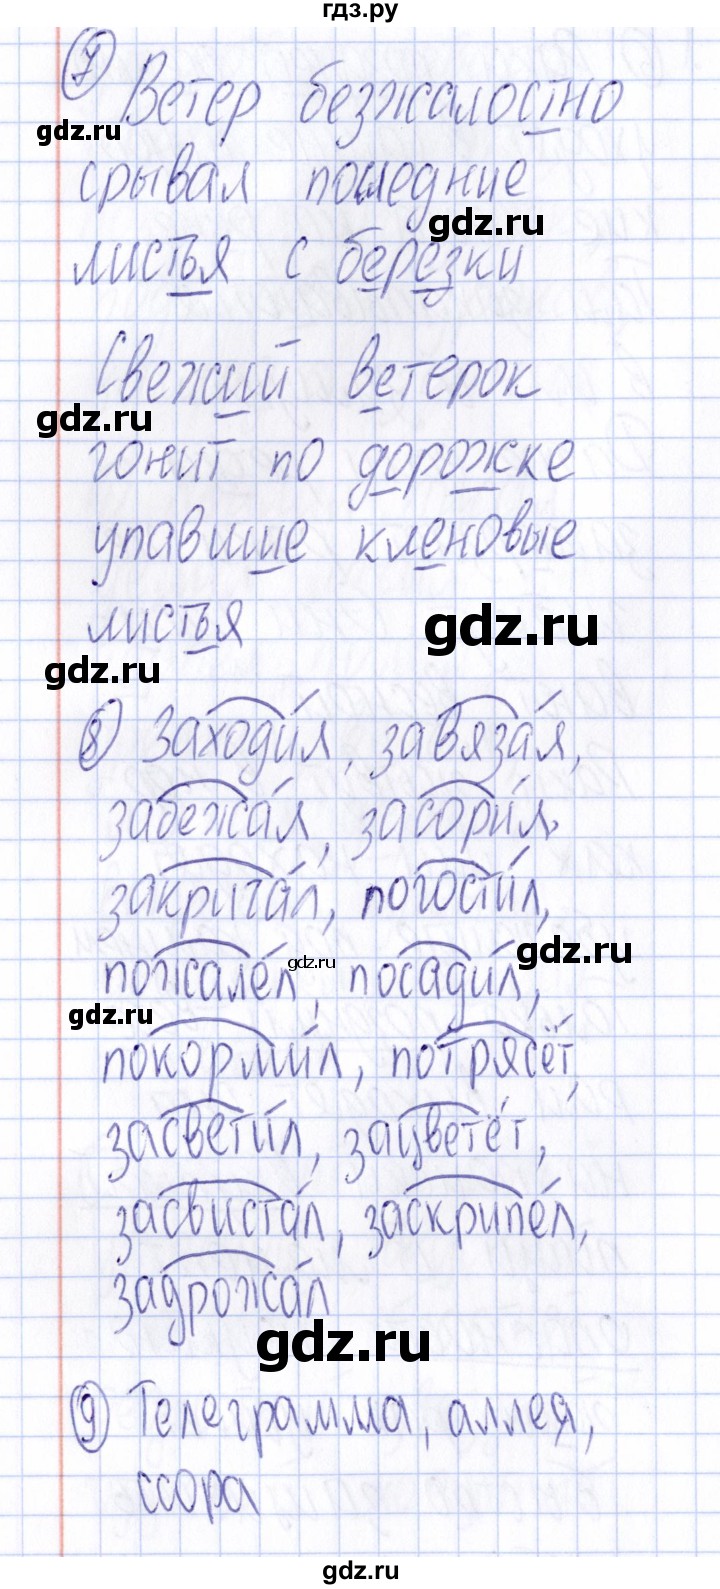 гдз.ру
7
Ветер безжалостно
gdz.ru
срывал последние
gdz.ru
листья с березки
Свежий ветерок
gdz.ru
гонит по дорожке
упавшие кленовые
gdz.ru
листья
gdz.ru
8) Заходил, завязал,
забежал, засорил,
закричал, погостил,
gdz.ru
пожалел, посадил,
gdz.ru
gdz.ru
покормил, потрясёт,
засветил, зацветёт,
засвистал, заскрипел,
задрожал
gdz.ru
9 Телеграмма, аллея,
ссора
gdz.ru